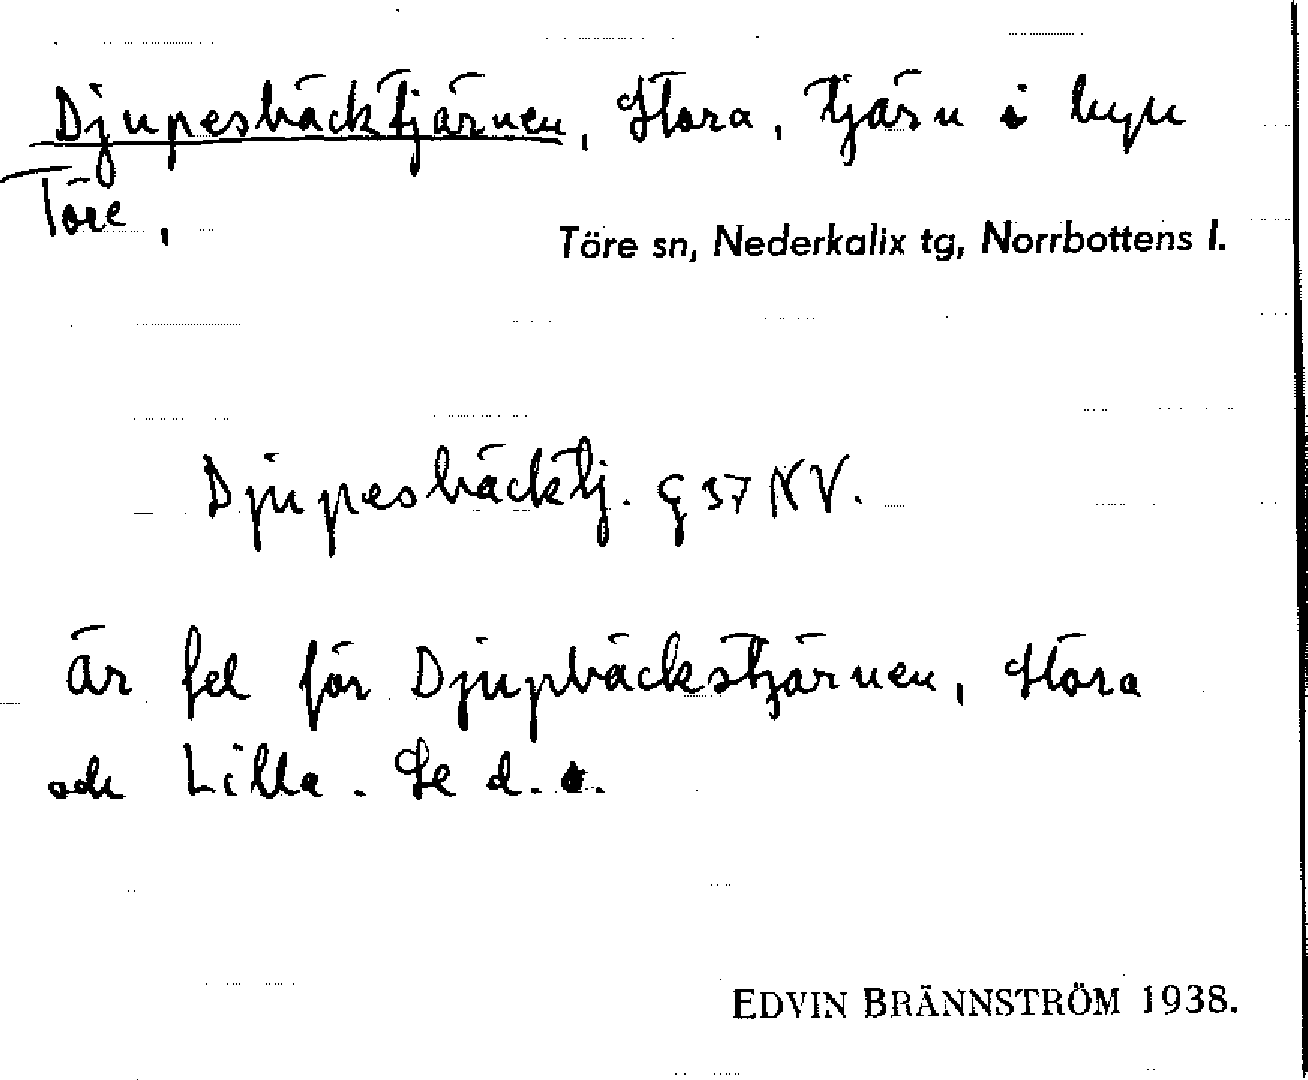 Djupesbäcktjärnen, Stora, tjärn i byn
Töre,
Töre sn, Nederkalix tg, Norrbottens l.
Djupesbäcktj. G 37 NV.
Är fel för Djupbäckstjärnen, Stora
och Lilla. Se d. o.
EDVIN BRÄNNSTRÖM 1938.